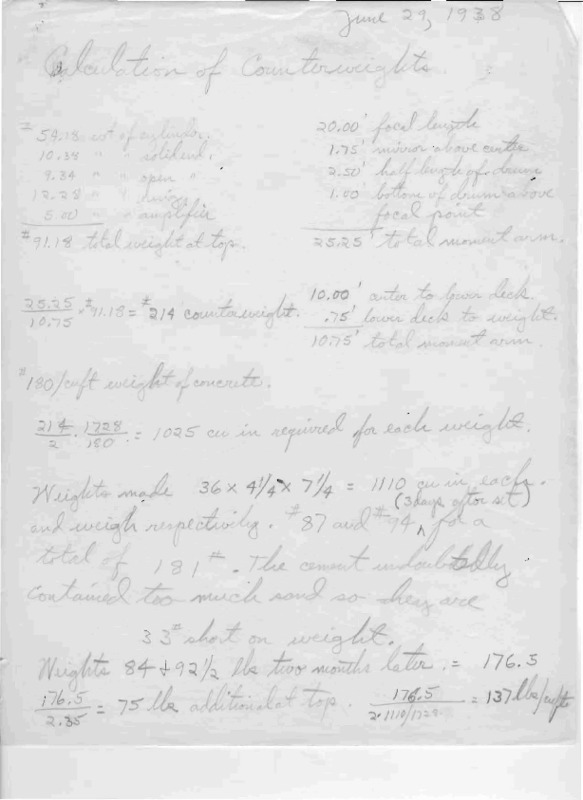 June 29, 1938
Calculation of Counterweights.
# 59.18 wt of cylinder.
10.38 " " solid end.
9.34 " " open "
12.28 " " 
5.00 " " amplifier
# 91.18 total weight at top.
20.00' focal length
1.75' mirror above center
2.50' half length of drum
1.00 bottom of drum above
focal point
25.25' total moment arm.
25.25/10.75 × #91.18 = #214 counterweight.
10.00' center to lower deck.
.75' lower deck to weight.
10.75' total moment arm.
#180/cuft weight of concrete.
214/2 · 1728/180 = 1025 cu in required for each weight.
Weights made 36 × 4 1/4 × 7 1/4 = 1110 cu in each.
(3 days after set)
and weigh respectively. #87 and #94 ^ for a
total of 181#. The cement undoubtedly
contained too much sand so they are
33# short on weight.
Weights 84 + 92 1/2 lbs two months later. = 176.5
176.5/2.35 = 75 lbs additional at top. 176.5/2·1110/1728 = 137 lbs/cuft